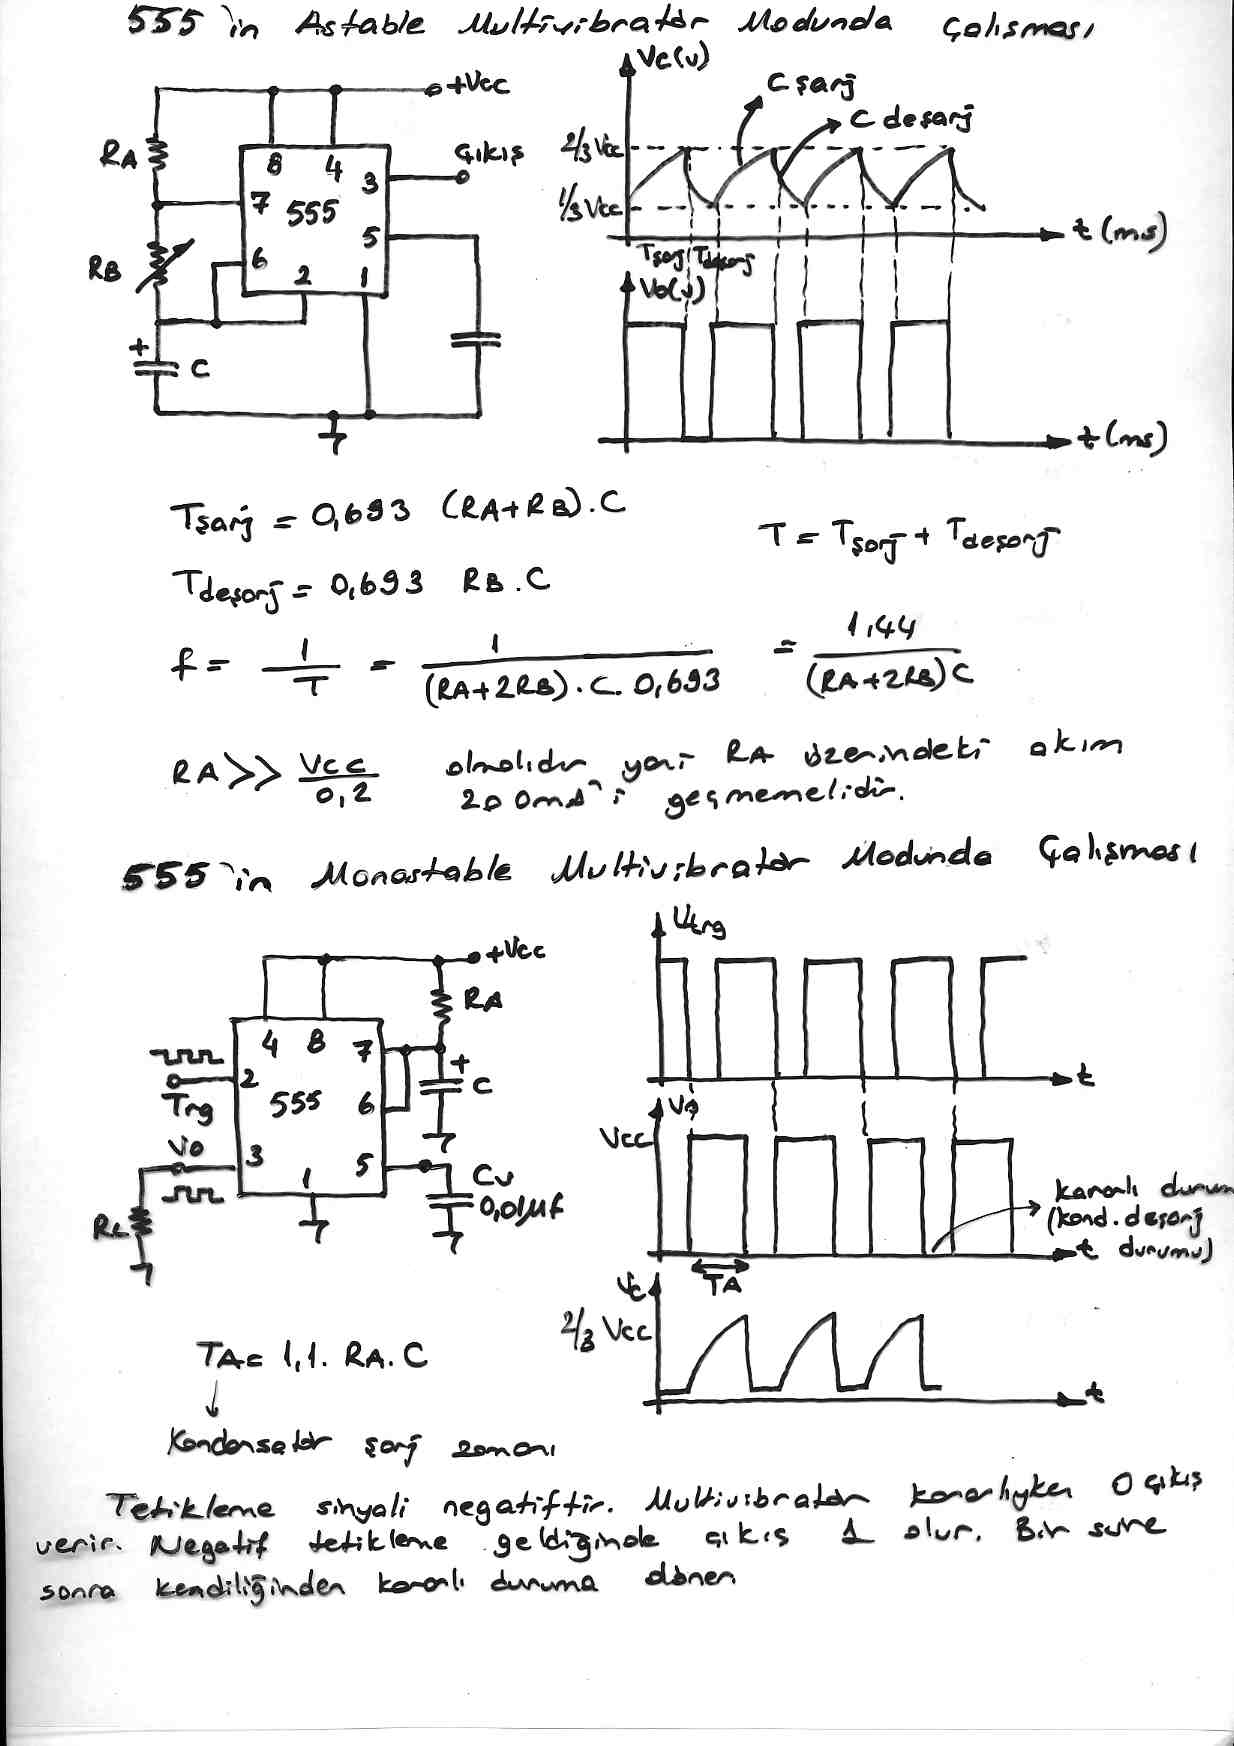 555'in Astable Multivibratör Modunda Çalışması
+Vcc
RA
8
4
3
Çıkış
7
555
5
RB
6
2
1
+
C
Vc(v)
C şarj
C deşarj
2/3 Vcc
1/3 Vcc
t (ms)
Tşarj
Tdeşarj
Vo(v)
t (ms)
Tşarj = 0,693 (RA+RB).C
T = Tşarj + Tdeşarj
Tdeşarj = 0,693 RB.C
f = 1/T = 1/(RA+2RB).C.0,693 = 1,44/(RA+2RB)C
RA>> Vcc/0,2 olmalıdır yani RA üzerindeki akım
200mA'i geçmemelidir.
555'in Monostable Multivibratör Modunda Çalışması
+Vcc
RA
4
8
7
+
C
2
Trg
555
6
Vo
3
1
5
Cv
0,01µf
RL
Vtrg
t
Vo
Vcc
kararlı durum
(kond. deşarj
durumu)
t
TA
Vc
2/3 Vcc
t
TA= 1,1. RA. C
Kondansatör şarj zamanı
Tetikleme sinyali negatiftir. Multivibratör kararlıyken 0 çıkış
verir. Negatif tetikleme geldiğinde çıkış 1 olur. Bir süre
sonra kendiliğinden kararlı duruma döner